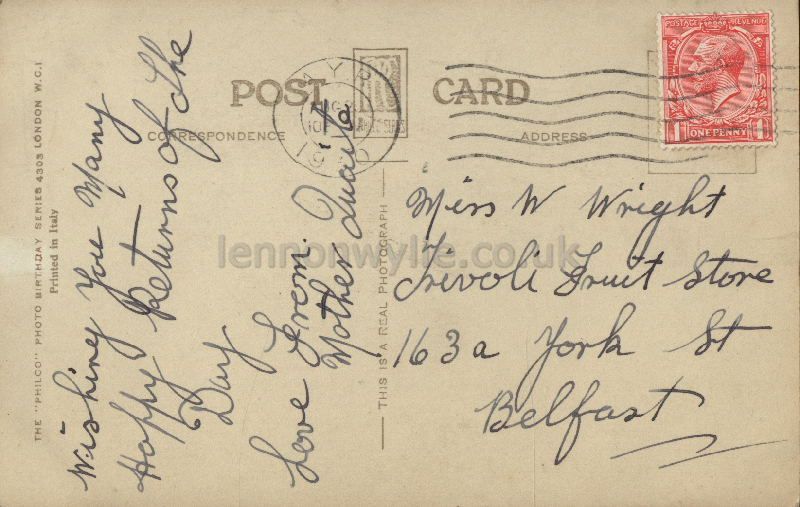 POST CARD
CORRESPONDENCE
ADDRESS
POSTAGE REVENUE
1 ONE PENNY 1
AYR
Wishing You Many
Happy Returns Of the
Day
Love From.
Mother Quail
Miss W Wright
Tivoli Fruit Store
163a York St
Belfast
THIS IS A REAL PHOTOGRAPH
THE "PHILCO" PHOTO BIRTHDAY SERIES 4303 LONDON W.C.1
Printed in Italy
lennonwylie.co.uk